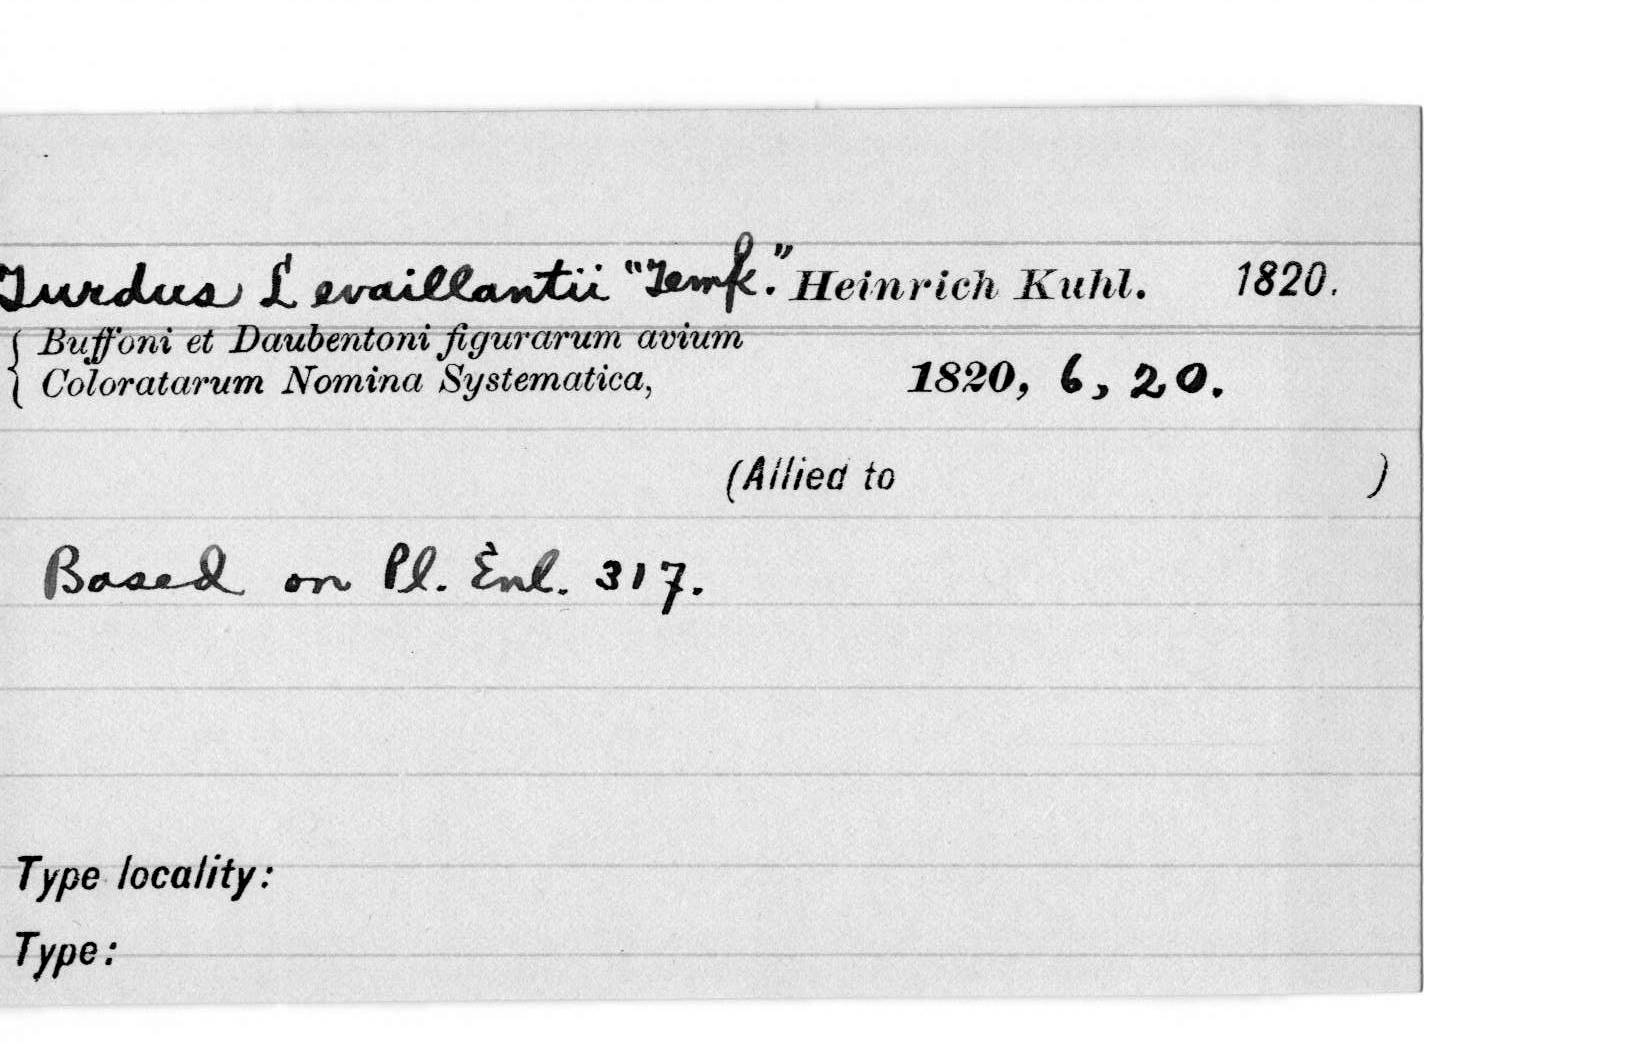 Turdus Levaillantii "Temk." Heinrich Kuhl. 1820.
{ Buffoni et Daubentoni figurarum avium
Coloratarum Nomina Systematica, 1820, 6, 20.
(Allied to )
Based on Pl. Enl. 317.
Type locality:
Type: